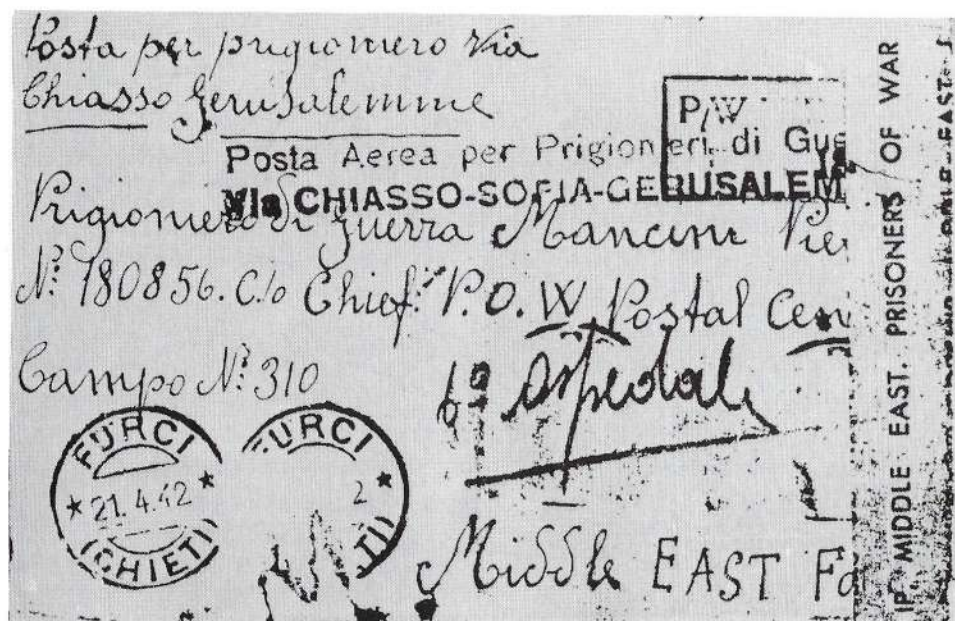 Posta per prigioniero Via
Chiasso Gerusalemme
P/W
Posta Aerea per Prigionieri di Gue
Via CHIASSO-SOFIA-GERUSALEM
Prigioniero di guerra Mancini Pie
N° 180856. C/o Chief. P.O.W Postal Cen
Campo N° 310
6° Ospedale
FURCI
21.4.42
(CHIETI)
FURCI
2
TI)
Middle EAST Fo
IP. MIDDLE EAST. PRISONERS OF WAR
MIDDLE EAST